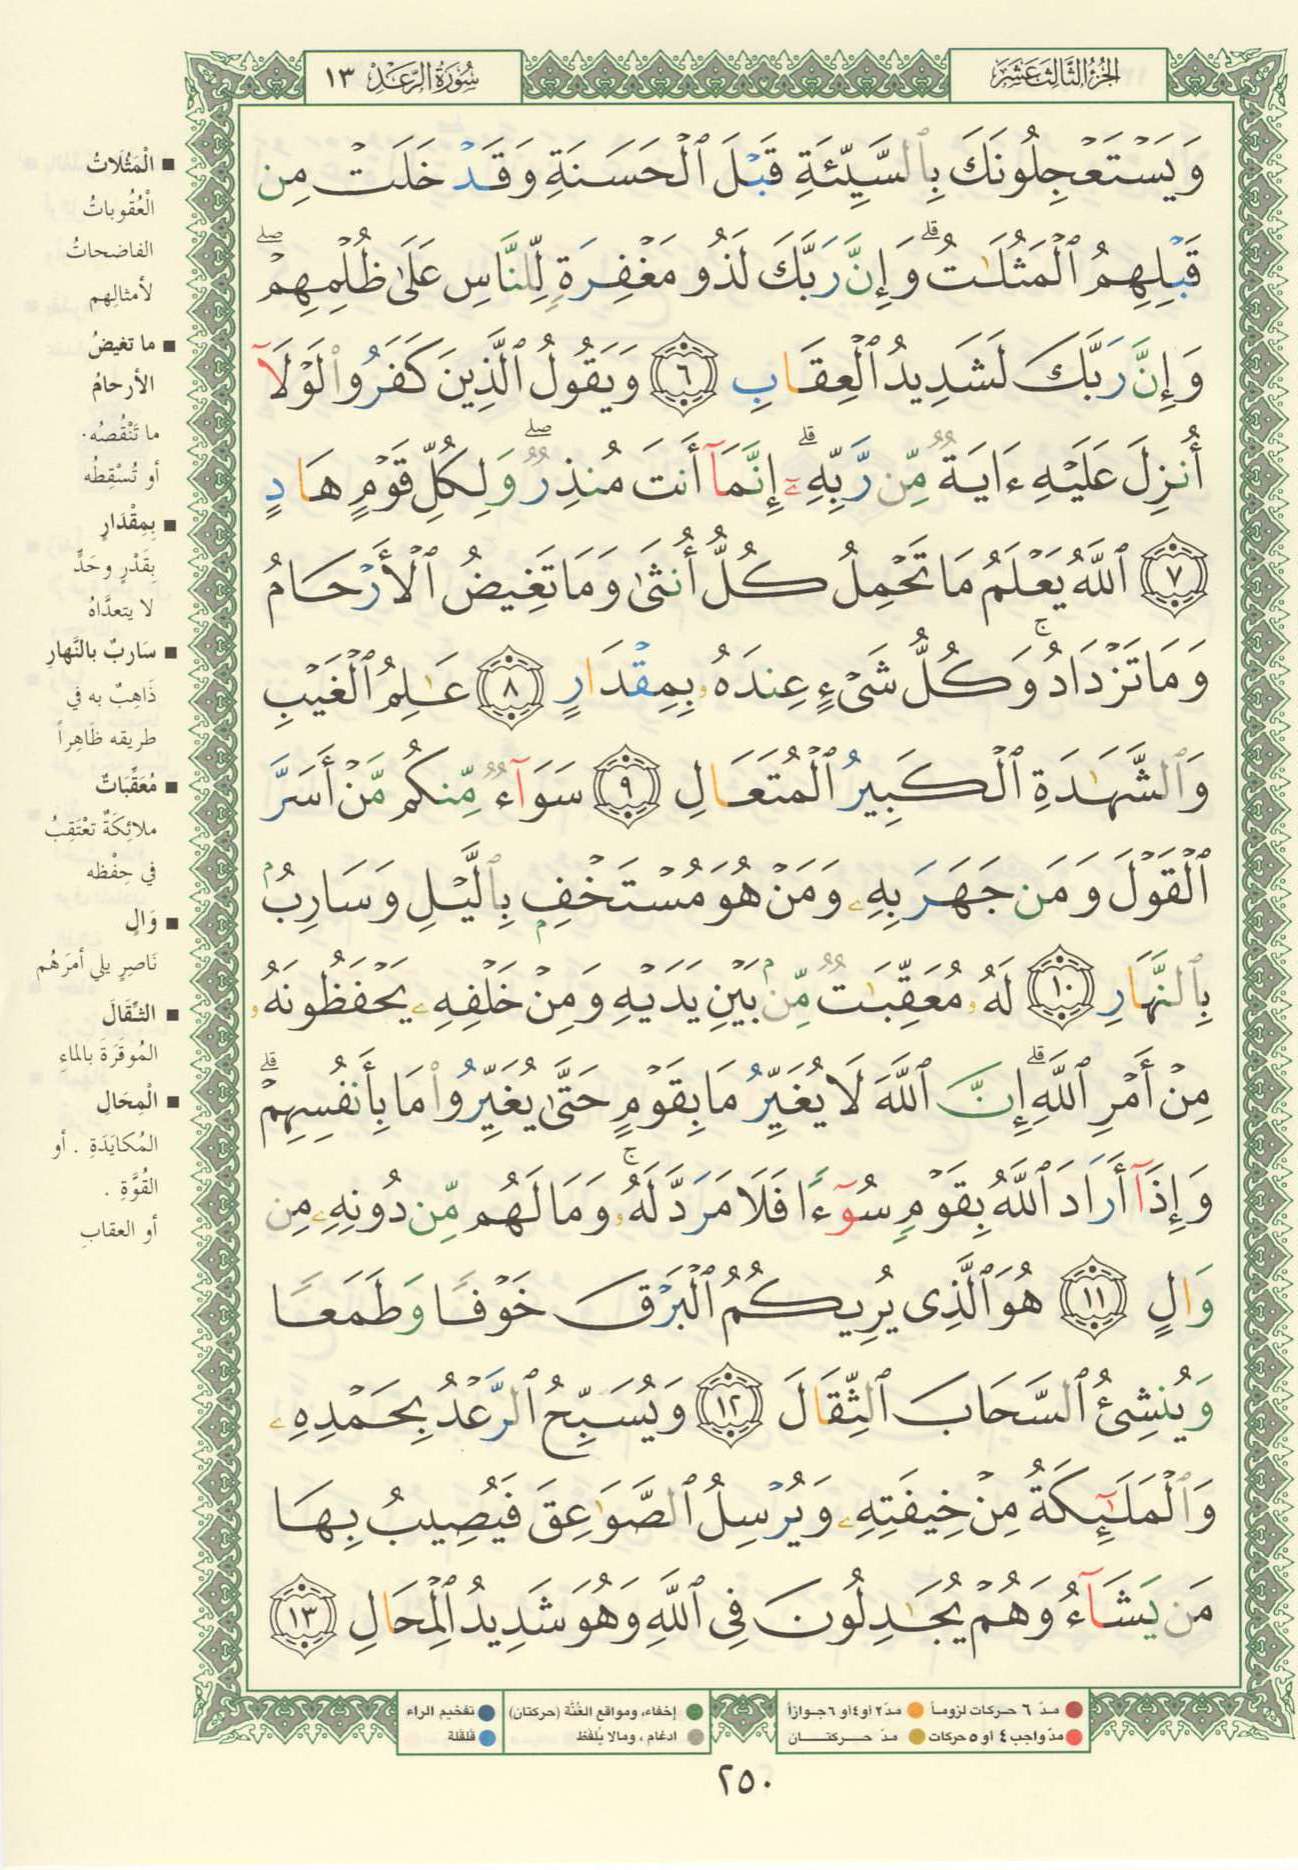 الجزء الثالث عشر
سورة الرعد ١٣
وَيَسْتَعْجِلُونَكَ بِٱلسَّيِّئَةِ قَبْلَ ٱلْحَسَنَةِ وَقَدْ خَلَتْ مِن
قَبْلِهِمُ ٱلْمَثُلَٰتُ ۗ وَإِنَّ رَبَّكَ لَذُو مَغْفِرَةٍ لِّلنَّاسِ عَلَىٰ ظُلْمِهِمْ ۖ
وَإِنَّ رَبَّكَ لَشَدِيدُ ٱلْعِقَابِ ٦ وَيَقُولُ ٱلَّذِينَ كَفَرُوا۟ لَوْلَآ
أُنزِلَ عَلَيْهِ ءَايَةٌ مِّن رَّبِّهِۦٓ ۗ إِنَّمَآ أَنتَ مُنذِرٌ ۖ وَلِكُلِّ قَوْمٍ هَادٍ
٧ ٱللَّهُ يَعْلَمُ مَا تَحْمِلُ كُلُّ أُنثَىٰ وَمَا تَغِيضُ ٱلْأَرْحَامُ
وَمَا تَزْدَادُ ۖ وَكُلُّ شَىْءٍ عِندَهُۥ بِمِقْدَارٍ ٨ عَٰلِمُ ٱلْغَيْبِ
وَٱلشَّهَٰدَةِ ٱلْكَبِيرُ ٱلْمُتَعَالِ ٩ سَوَآءٌ مِّنكُم مَّنْ أَسَرَّ
ٱلْقَوْلَ وَمَن جَهَرَ بِهِۦ وَمَنْ هُوَ مُسْتَخْفٍۭ بِٱلَّيْلِ وَسَارِبٌۢ
بِٱلنَّهَارِ ١٠ لَهُۥ مُعَقِّبَٰتٌ مِّنۢ بَيْنِ يَدَيْهِ وَمِنْ خَلْفِهِۦ يَحْفَظُونَهُۥ
مِنْ أَمْرِ ٱللَّهِ ۗ إِنَّ ٱللَّهَ لَا يُغَيِّرُ مَا بِقَوْمٍ حَتَّىٰ يُغَيِّرُوا۟ مَا بِأَنفُسِهِمْ ۗ
وَإِذَآ أَرَادَ ٱللَّهُ بِقَوْمٍ سُوٓءًا فَلَا مَرَدَّ لَهُۥ ۚ وَمَا لَهُم مِّن دُونِهِۦ مِن
وَالٍ ١١ هُوَ ٱلَّذِى يُرِيكُمُ ٱلْبَرْقَ خَوْفًا وَطَمَعًا
وَيُنشِئُ ٱلسَّحَابَ ٱلثِّقَالَ ١٢ وَيُسَبِّحُ ٱلرَّعْدُ بِحَمْدِهِۦ
وَٱلْمَلَٰٓئِكَةُ مِنْ خِيفَتِهِۦ وَيُرْسِلُ ٱلصَّوَٰعِقَ فَيُصِيبُ بِهَا
مَن يَشَآءُ وَهُمْ يُجَٰدِلُونَ فِى ٱللَّهِ وَهُوَ شَدِيدُ ٱلْمِحَالِ ١٣
الْمَثُلَاتُ
الْعُقُوباتُ
الفاضحاتُ
لأمثالِهم
ما تغيضُ
الأرحامُ
ما تَنْقُصُه.
أو تُسْقِطُه
بِمِقْدَارٍ
بِقَدْرٍ وحَدٍّ
لا يتعدَّاهُ
سَاربٌ بالنَّهارِ
ذَاهِبٌ به في
طريقه ظَاهِراً
مُعَقِّبَاتٌ
ملائِكَةٌ تعْتَقِبُ
في حِفْظه
وَالٍ
نَاصِرٍ يلي أمرَهُم
الثِّقَالَ
المُوقَرَةَ بالماءِ
الْمِحَالِ
المُكايَدَةِ . أو
القُوَّةِ .
أو العقابِ
مدّ ٦ حركات لزوماً
مدّ ٢ أو ٤ أو ٦ جوازاً
مدّ واجب ٤ أو ٥ حركات
مدّ حركتان
إخفاء، ومواقع الغُنَّة (حركتان)
ادغام ، ومالا يُلفظ
تفخيم الراء
قلقلة
٢٥٠